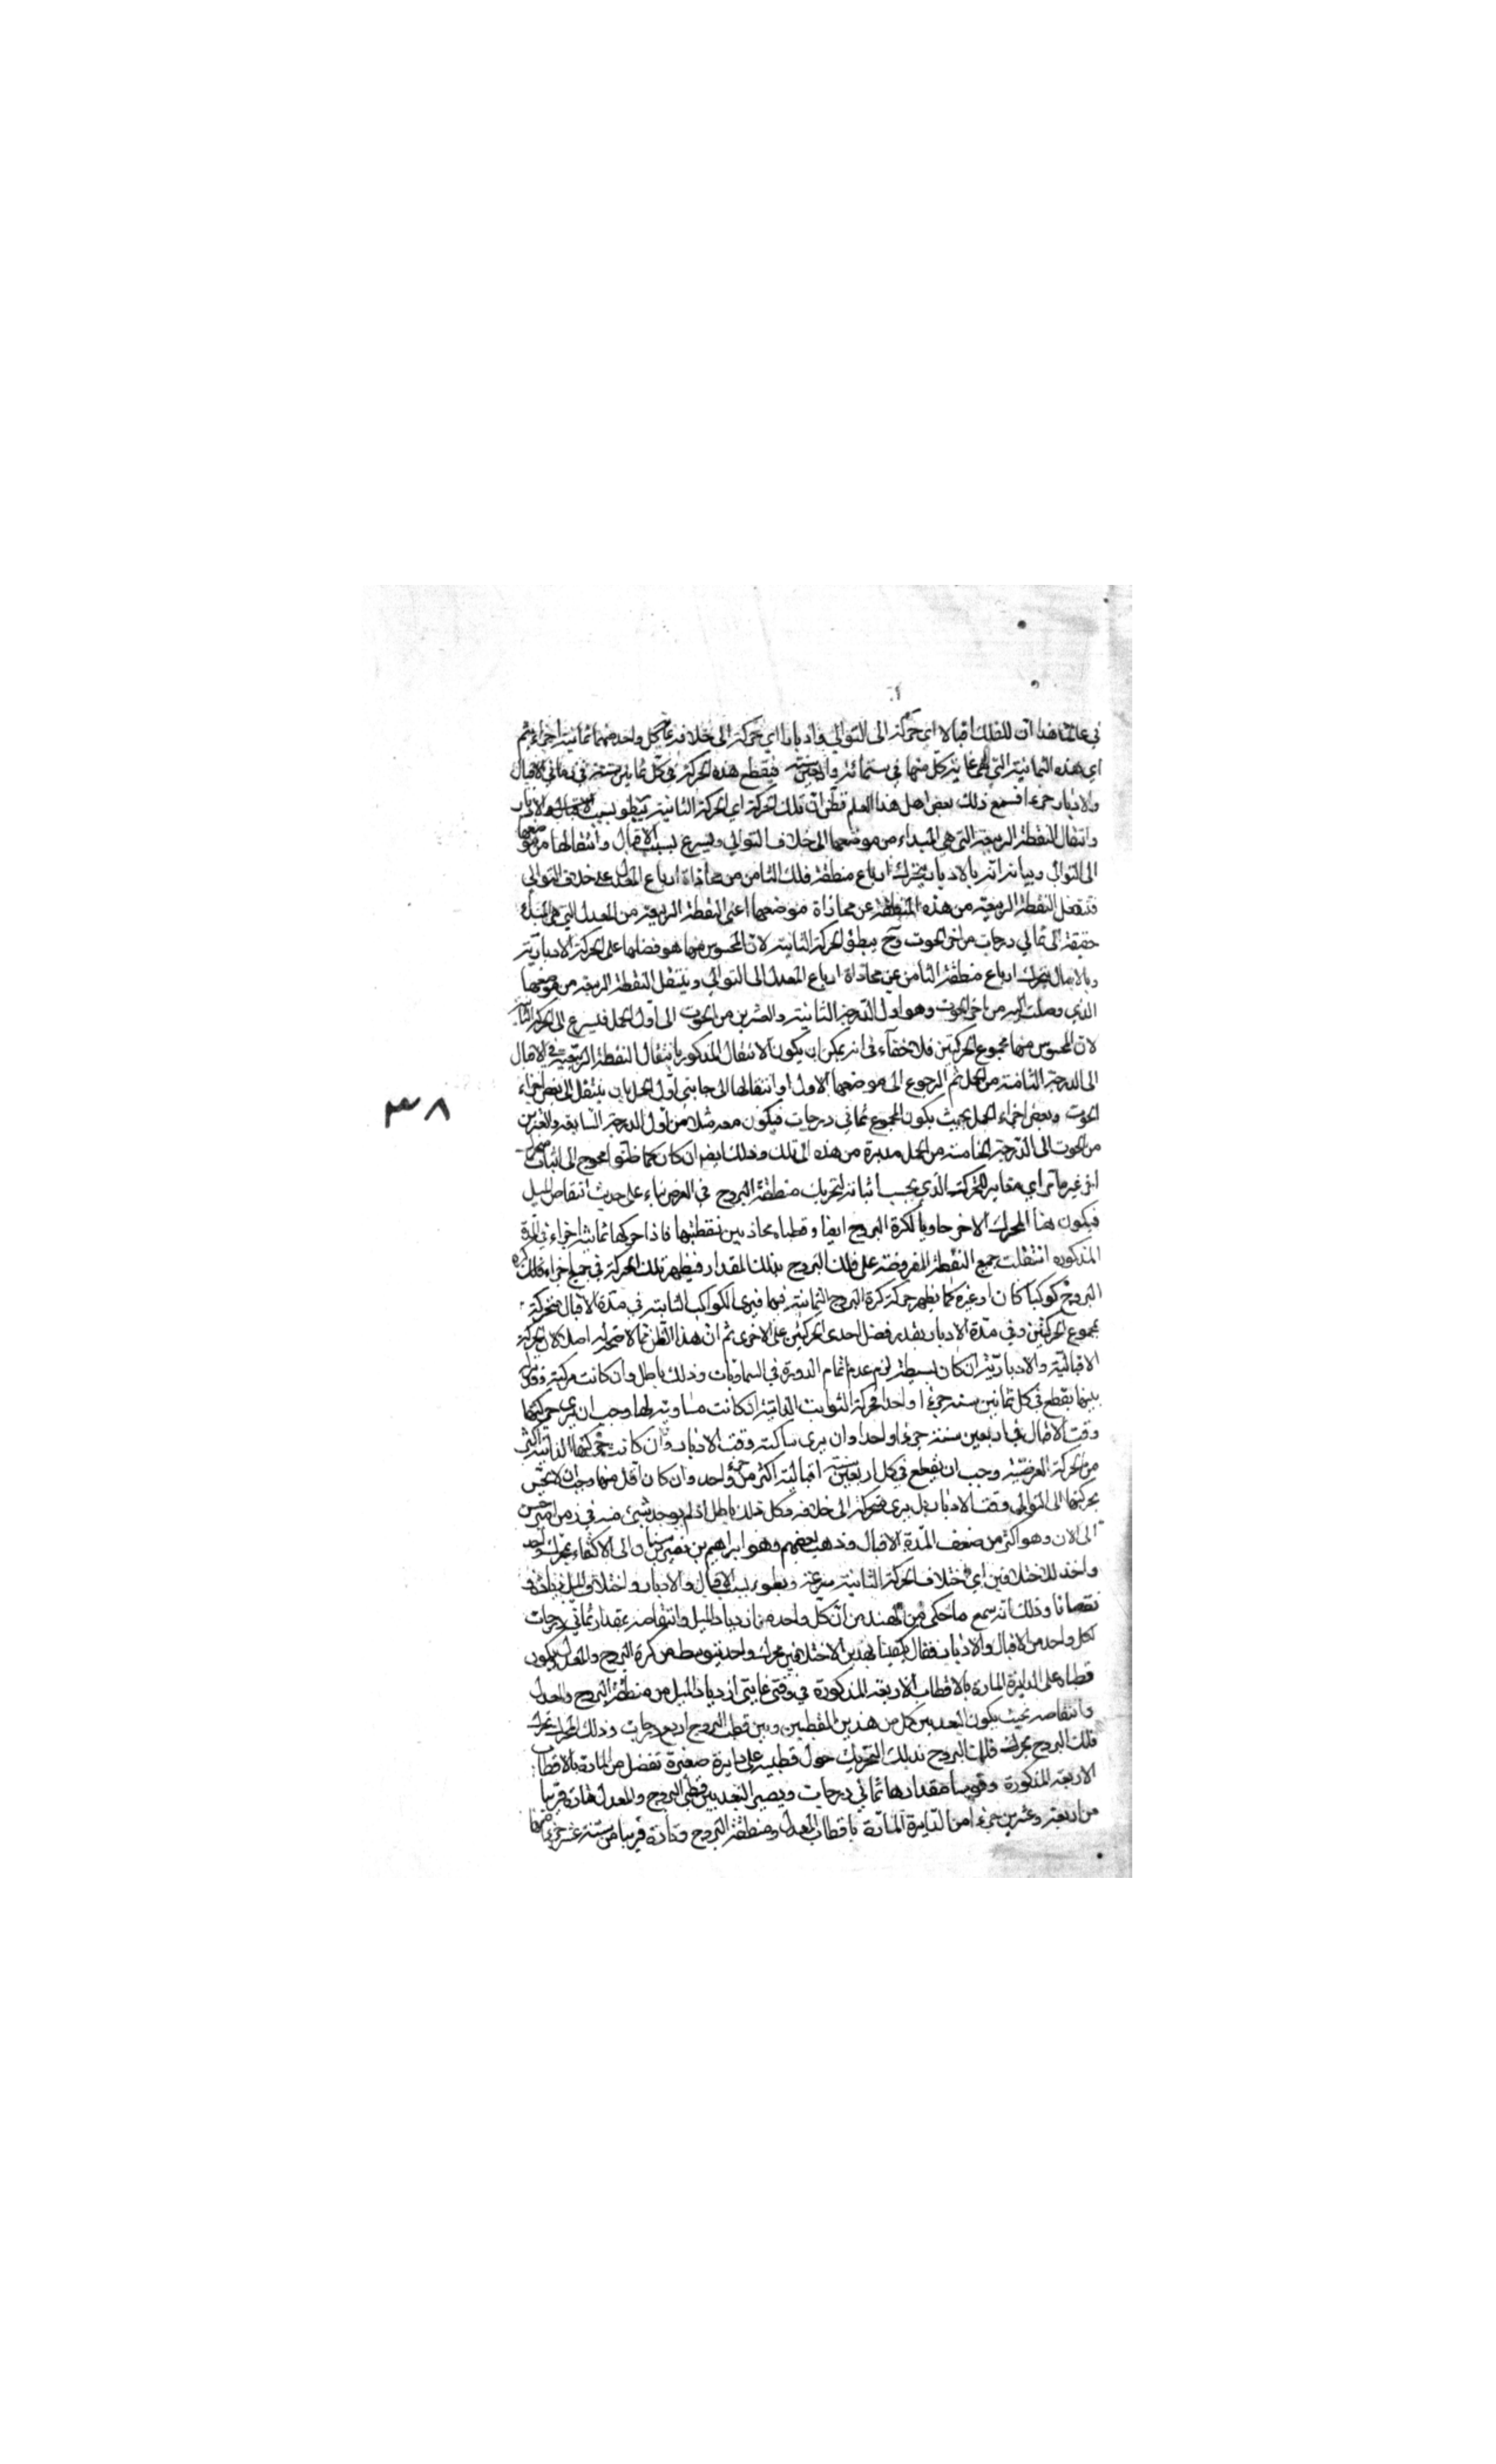 في عالمنا هذا ان للفلك اقبالا اي حركة الى التوالي وادبارا اي حركة الى خلافه غاية كل واحد منهما ثمانية اجزاء يتم
اي هذه الثمانية التي هي غاية كل منهما في ستمائة واربعين سنة فيقطع هذه الحركة في كل ثمانين سنة في زماني الاقبال
والادبار جزءا فسمع ذلك بعض اهل هذا العلم فظن ان تلك الحركة اي الحركة الثانية تبطؤ بسبب الاقبال والادبار
وانتقال النقطة الربيعية التي هي المبداء من موضعها الى خلاف التوالي ويسرع بسبب الاقبال وانتقالها من موضعها
الى التوالي وبيانه انه بالادبار يتحرك ارباع منطقة فلك الثامن من محاذاة ارباع المعدل على خلاف التوالي
فتنتقل النقطة الربيعية من هذه المنطقة عن محاذاة موضعها اعني النقطة الربيعية من المعدل التي هي المبداء
حقيقة الى ثماني درجات من اخر الحوت وح يبطؤ الحركة الثانية لان المحسوس منها هو فضلها على الحركة الادبارية
وبالاقبال يتحرك ارباع منطقة الثامن عن محاذاة ارباع المعدل الى التوالي وينتقل النقطة الربيعية من موضعها
الذي وصلت اليه من اخر الحوت وهو اول الدرجة الثانية والعشرين من الحوت الى اول الحمل فيسرع الحركة الثانية
لان المحسوس منها مجموع الحركتين فلا خفاء في انه يمكن ان يكون الانتقال المذكور بانتقال النقطة الربيعية في الاقبال
الى الدرجة الثامنة من الحمل ثم الرجوع الى موضعها الاول او انتقالها الى جانبي اول الحمل بان ينتقل الى بعض اجزاء
الحوت وبعض اجزاء الحمل بحيث يكون المجموع ثماني درجات فيكون معه مثلا من اول الدرجة السابعة والعشرين
٣٨
من الحوت الى الدرجة الخامسة من الحمل مدبرة من هذه الى تلك وذلك ايضا ان كان كما ظنوا محوج الى اثبات محرك
اخر غير ما مر اي مغاير للمحرك الذي يجب اثباته لتحريك منطقة البروج في العرض بناء على حديث انتقاص الميل
فيكون هذا المحرك الاخر حاويا لكرة البروج ايضا وقطباه محاذيين لقطبيها فاذا حركها ثمانية اجزاء في المدة
المذكورة انتقلت جميع النقطة المفروضة على فلك البروج بذلك المقدار فيظهر تلك الحركة في جميع اجزاء فلك كرة
البروج كوكبا كان او غيره كما يظهر حركة كرة البروج الثمانية فيها فيرى الكواكب الثابتة في مدة الاقبال متحركة
بمجموع الحركتين وفي مدة الادبار بقدر فضل احدى الحركتين على الاخرى ثم ان هذا الظن مما لا صحة له اصلا لان الحركة
الاقبالية والادبارية ان كان بسيطة لزم عدم اتمام الدورة في السماويات وذلك باطل وان كانت مركبة
بينهما يقطع في كل ثمانين سنة جزءا واحدا فحركة الثوابت الذاتية ان كانت مساوية لها وجب ان يرى حركتها
وقت الاقبال في اربعين سنة جزءا واحدا وان يرى ساكنة وقت الادبار وان كانت حركتها الذاتية اكثر
من الحركة العرضية وجب ان يقطع في كل اربعين سنة اقبالية اكثر من جزء واحد وان كان اقل منها وجب ان لا يحس
بحركتها الى التوالي وقت الادبار بل يرى متحركة الى خلافه وكل ذلك باطل اذ لم يوجد شيئ منه في زمن ابرخس
الى الان وهو اكثر من ضعف المدة الاقبال وذهب بعضهم وهو ابراهيم بن سنان الى الاكتفاء بمحرك واحد
واخذ للاختلافين اي اختلاف الحركة الثانية سرعة وبطوء بسبب الاقبال والادبار واختلاف الميل زيادة و
نقصانا وذلك انه سمع ما حكى من الهند من ان كل واحد من ازدياد الميل وانتقاصه بمقدار ثماني درجات
لكل واحد من الاقبال والادبار فقال يكفينا لهذين الاختلافين محرك واحد يتوسط من كرة البروج والمعدل يكون
قطباه على الدايرة المارة بالاقطاب الاربعة المذكورة في وقتي غايتي ازدياد الميل من منطقة البروج والمعدل
وانتقاصه بحيث يكون البعد بين كل من هذين القطبين وبين قطب البروج اربع درجات وذلك المحرك يحرك
فلك البروج بحركة فلك البروج بذلك التحريك حول قطبيه على دايرة صغيرة تفضل من المارة بالاقطاب
الاربعة المذكورة وقوسا مقدارها ثماني درجات ويصير البعد بين قطبي البروج والمعدل تارة قريبا
من اربعة وعشرين جزءا من الدايرة المارة باقطاب المعدل ومنطقة البروج وتارة قريبا من ستة عشر جزءا منها